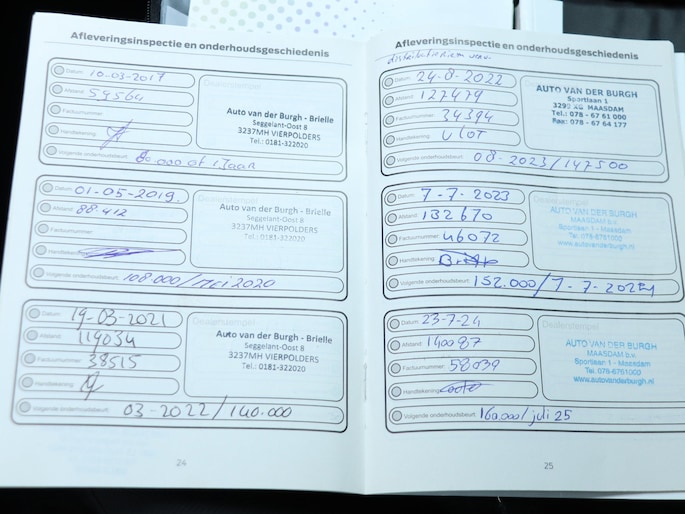 Afleveringsinspectie en onderhoudsgeschiedenis
Datum: 10-03-2017
Afstand: 59564
Factuurnummer:
Handtekening:
Volgende onderhoudsbeurt: 80.000 of 1 Jaar
Dealerstempel
Auto van der Burgh - Brielle
Seggelant-Oost 8
3237MH VIERPOLDERS
Tel.: 0181-322020
Datum: 01-05-2019.
Afstand: 88.412
Factuurnummer:
Handtekening:
Volgende onderhoudsbeurt: 108.000/mei 2020
Auto van der Burgh - Brielle
Seggelant-Oost 8
3237MH VIERPOLDERS
Tel.: 0181-322020
Datum: 19-03-2021
Afstand: 119034
Factuurnummer: 38515
Handtekening:
Volgende onderhoudsbeurt: 03-2022/140.000
Dealerstempel
Auto van der Burgh - Brielle
Seggelant-Oost 8
3237MH VIERPOLDERS
Tel.: 0181-322020
24
Afleveringsinspectie en onderhoudsgeschiedenis
distributieriem
Datum: 24-8-2022
Afstand: 127479
Factuurnummer: 34394
Handtekening: Vlot
Volgende onderhoudsbeurt: 08-2023/147500
AUTO VAN DER BURGH
Sportlaan 1
3299 XG MAASDAM
Tel.: 078 - 67 61 000
Fax: 078 - 67 64 177
Datum: 7-7-2023
Afstand: 132670
Factuurnummer: 46072
Handtekening:
Volgende onderhoudsbeurt: 152.000/7-7-2024
Dealerstempel
AUTO VAN DER BURGH
MAASDAM b.v.
Sportlaan 1 - Maasdam
Tel. 078-6761000
www.autovanderburgh.nl
Datum: 23-7-24
Afstand: 140087
Factuurnummer: 58039
Handtekening:
Volgende onderhoudsbeurt: 160.000/juli 25
Dealerstempel
AUTO VAN DER BURGH
MAASDAM b.v.
Sportlaan 1 - Maasdam
Tel. 078-6761000
www.autovanderburgh.nl
25